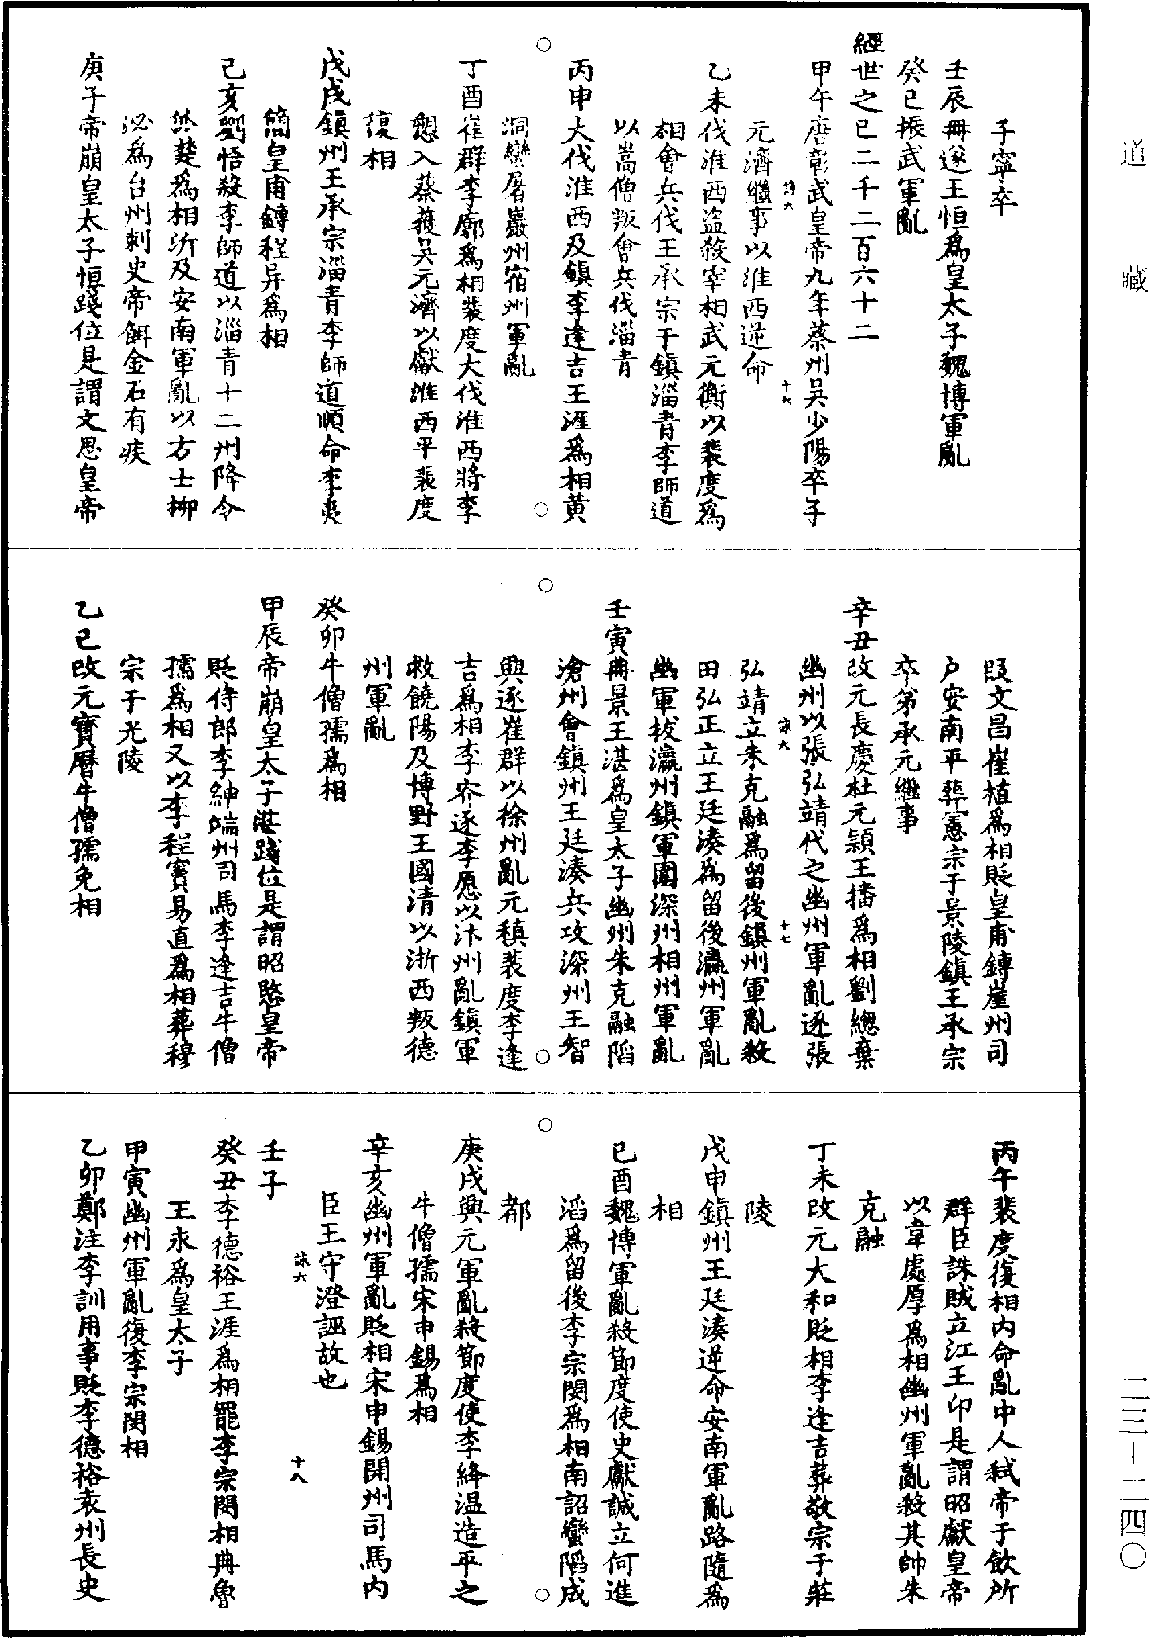 道藏
子寧卒
壬辰冊遂王恒爲皇太子魏博軍亂
癸巳振武軍亂
經世之巳二千二百六十二
甲午唐彰武皇帝九年蔡州吳少陽卒子
元濟繼事以淮西逆命
乙未伐淮西盜殺宰相武元衡以裴度爲
相會兵伐王承宗于鎮淄青李師道
以嵩僧叛會兵伐淄青
丙申大伐淮西及鎮李逢吉王涯爲相黃
洞蠻屠巖州宿州軍亂
丁酉崔群李鄘爲相裴度大伐淮西將李
愬入蔡獲吳元濟以獻淮西平裴度
復相
戊戌鎮州王承宗淄青李師道順命李夷
簡皇甫鏄程异爲相
己亥劉悟殺李師道以淄青十二州降令
狐楚爲相沂及安南軍亂以方士柳
泌爲台州刺史帝餌金石有疾
庚子帝崩皇太子恒踐位是謂文思皇帝
段文昌崔植爲相貶皇甫鏄崖州司
戶安南平葬憲宗于景陵鎮王承宗
卒弟承元繼事
辛丑改元長慶杜元穎王播爲相劉總棄
幽州以張弘靖代之幽州軍亂逐張
弘靖立朱克融爲留後鎮州軍亂殺
田弘正立王廷湊爲留後瀛州軍亂
幽軍拔瀛州鎮軍圍深州相州軍亂
壬寅冊景王湛爲皇太子幽州朱克融陷
滄州會鎮州王廷湊兵攻深州王智
興逐崔群以徐州亂元稹裴度李逢
吉爲相李㝏逐李愿以汴州亂鎮軍
救饒陽及博野王國清以浙西叛德
州軍亂
癸卯牛僧孺爲相
甲辰帝崩皇太子湛踐位是謂昭愍皇帝
貶侍郎李紳端州司馬李逢吉牛僧
孺爲相又以李程竇易直爲相葬穆
宗于光陵
乙巳改元寶曆牛僧孺免相
丙午裴度復相內命亂中人弒帝于飲所
群臣誅賊立江王卬是謂昭獻皇帝
以韋處厚爲相幽州軍亂殺其帥朱
克融
丁未改元大和貶相李逢吉葬敬宗于莊
陵
戊申鎮州王廷湊逆命安南軍亂路隨爲
相
己酉魏博軍亂殺節度使史獻誠立何進
滔爲留後李宗閔爲相南詔蠻陷成
都
庚戌興元軍亂殺節度使李絳溫造平之
牛僧孺宋申錫爲相
辛亥幽州軍亂貶相宋申錫開州司馬內
臣王守澄誣故也
壬子
癸丑李德裕王涯爲相罷李宗閔相冊魯
王永爲皇太子
甲寅幽州軍亂復李宗閔相
乙卯鄭注李訓用事貶李德裕袁州長史
二三—二四〇